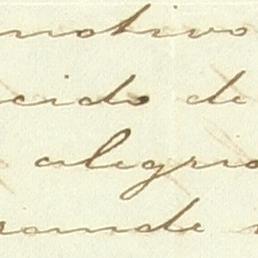 motivo
cido de
alegria
rande